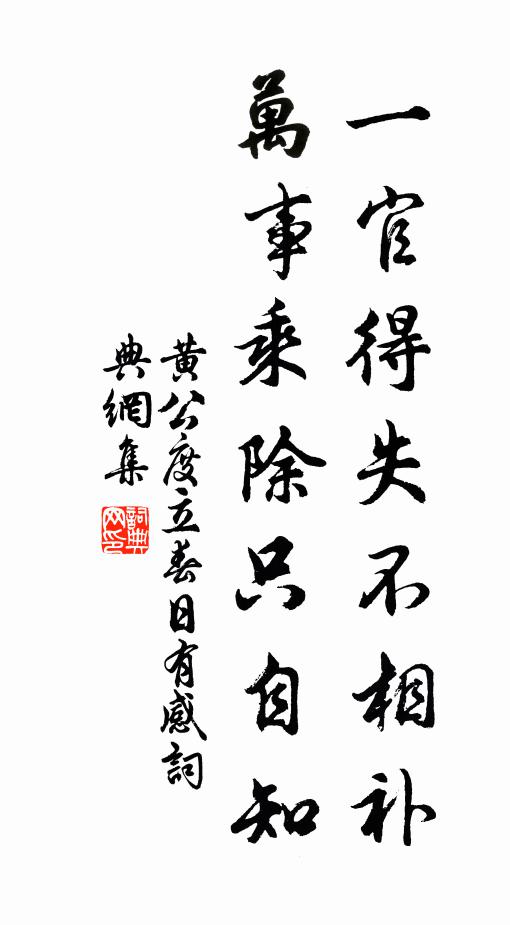 一官得失不相补
萬事乘除只自知
黄公度立春日有感詞
典網集
詞典网印